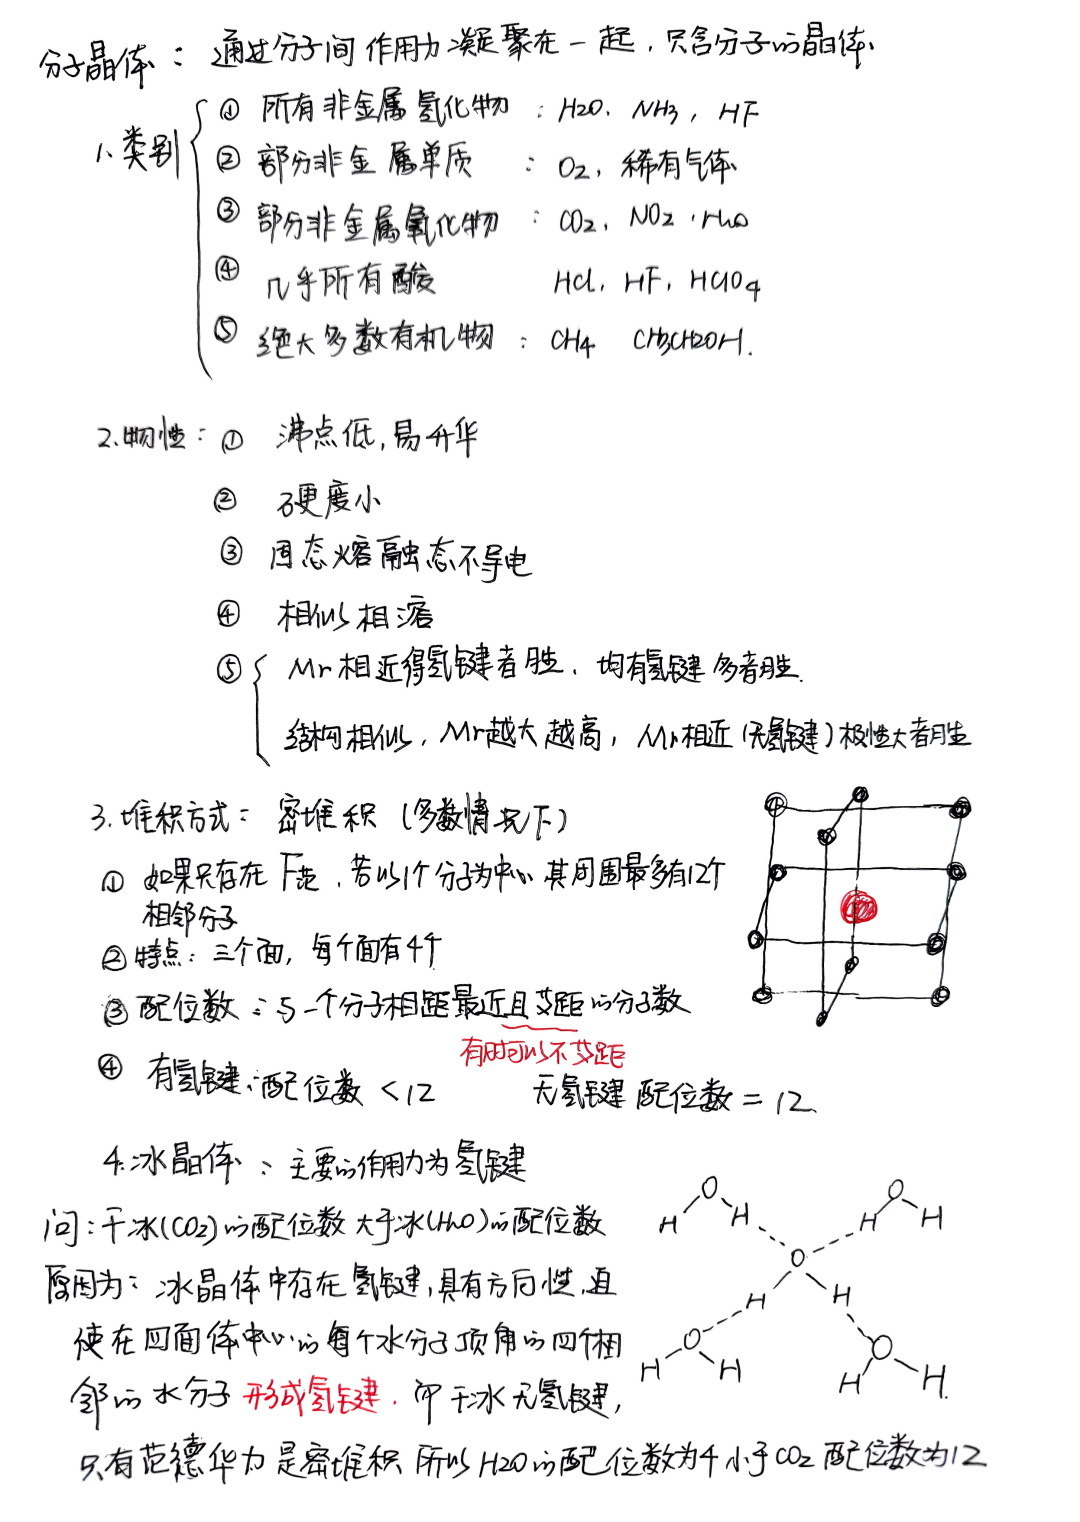 分子晶体：通过分子间作用力凝聚在一起，只含分子的晶体.
1、类别
① 所有非金属氢化物：H2O、NH3，HF
② 部分非金属单质：O2，稀有气体
③ 部分非金属氧化物：CO2，NO2，H2O
④ 几乎所有酸 HCl，HF，HClO4
⑤ 绝大多数有机物：CH4 CH3CH2OH.
2.物性：① 沸点低，易升华
② 硬度小
③ 固态熔融态不导电
④ 相似相溶
⑤ Mr相近得氢键者胜、均有氢键多者胜.
结构相似，Mr越大越高，Mr相近（无氢键）极性大者胜
3.堆积方式：密堆积（多数情况下）
① 如果只存在F范，若以1个分子为中心其周围最多有12个
相邻分子
② 特点：三个面，每个面有4个
③ 配位数：与一个分子相距最近且等距的分子数
有时可以不等距
④ 有氢键：配位数＜12 无氢键 配位数＝12、
4.冰晶体：主要的作用力为氢键
问：干冰(CO2)的配位数大于冰(H2O)的配位数
原因为：冰晶体中存在氢键，具有方向性，迫
使在四面体中心的每个水分子顶角的四个相
邻的水分子形成氢键. 而干冰无氢键，
只有范德华力是密堆积 所以H2O的配位数为4小于CO2配位数为12
O O
H H H H
O
H H
O O
H H H H